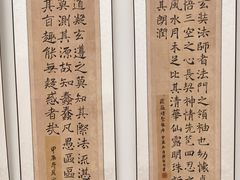 玄奘法師者法門之領袖也幼懷
悟三空之心長契神情先苞四忍
風水月未足比其清華仙露明珠
其朗潤
道凝玄遵之莫知其際法流湛
莫測其源故知蠢蠢凡愚區區
其旨趣能無疑惑者哉